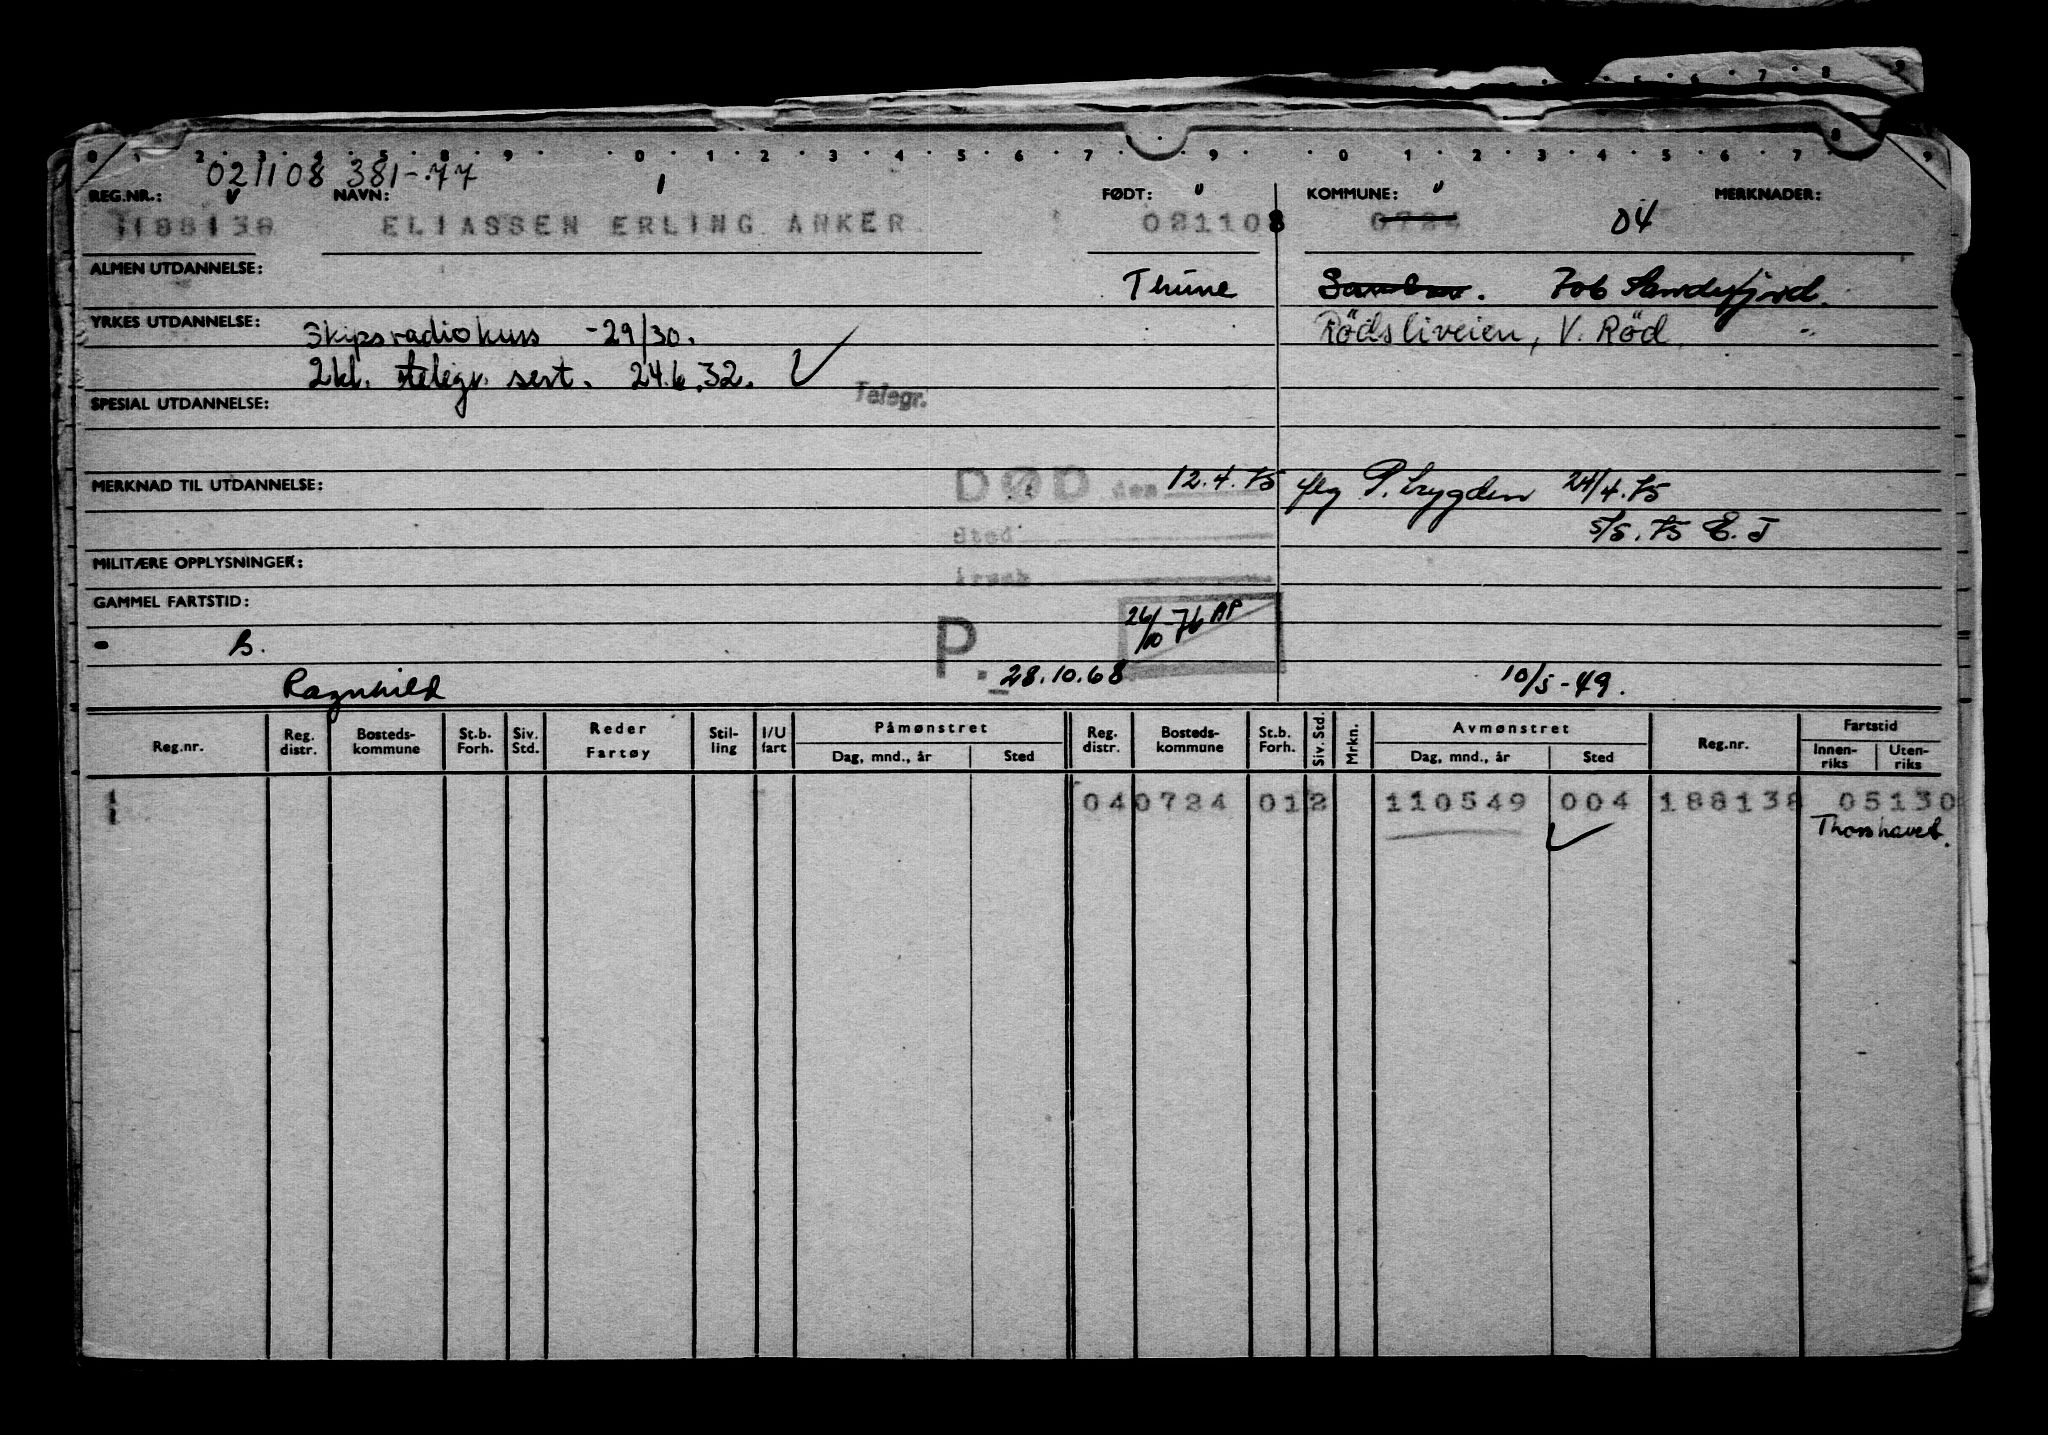 021108 381-77
REG.NR.: NAVN: FØDT: KOMMUNE: MERKNADER:
188138 ELIASSEN ERLING ANKER 021108 0724 04
ALMEN UTDANNELSE: Thune Sandar. Job Sandefjord.
YRKES UTDANNELSE: Skipsradiokurs -29/30. Rödsliveien, V. Röd. "
2kl. telegr. sert. 24.6.32.
SPESIAL UTDANNELSE: Telegr.
MERKNAD TIL UTDANNELSE: DØD den 12.4.75 flg P. trygden 24/4.75
Sted 5/5.75 E.J
MILITÆRE OPPLYSNINGER: Årsak
GAMMEL FARTSTID:
B. P. 26/10-76 AP
Ragnhild 28.10.68 10/5-49.
Reg.nr. Reg. distr. Bosteds-kommune St.b. Forh. Siv. Std. Reder Fartøy Stil-ling I/U fart Påmønstret Dag, mnd., år Sted Reg. distr. Bosteds-kommune St.b. Forh. Siv. Std. Mrkn. Avmønstret Dag, mnd., år Sted Reg.nr. Fartstid Innen-riks Uten-riks
04 0724 01 2 110549 004 188138 05130
Thorshavet.